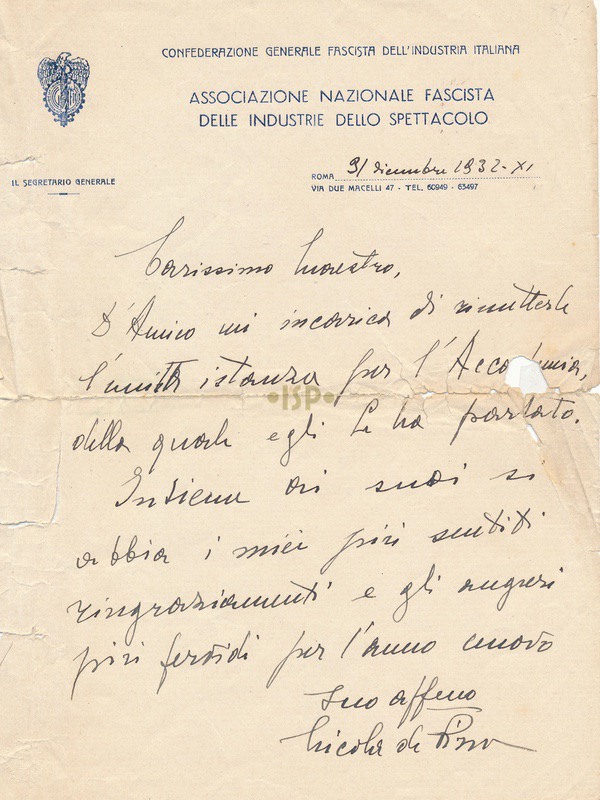 CONFEDERAZIONE GENERALE FASCISTA DELL'INDUSTRIA ITALIANA
ASSOCIAZIONE NAZIONALE FASCISTA
DELLE INDUSTRIE DELLO SPETTACOLO
IL SEGRETARIO GENERALE
ROMA 31 dicembre 1932-XI
VIA DUE MACELLI 47 - TEL. 60949 - 63497
Carissimo Maestro,
D'Amico mi incarica di rimetterle
l'unita istanza per l'Accademia,
•ISP•
della quale egli Le ha parlato.
Insieme ai suoi si
abbia i miei più sentiti
ringraziamenti e gli auguri
più fervidi per l'anno nuovo
Suo affeno
Nicola de Pirro